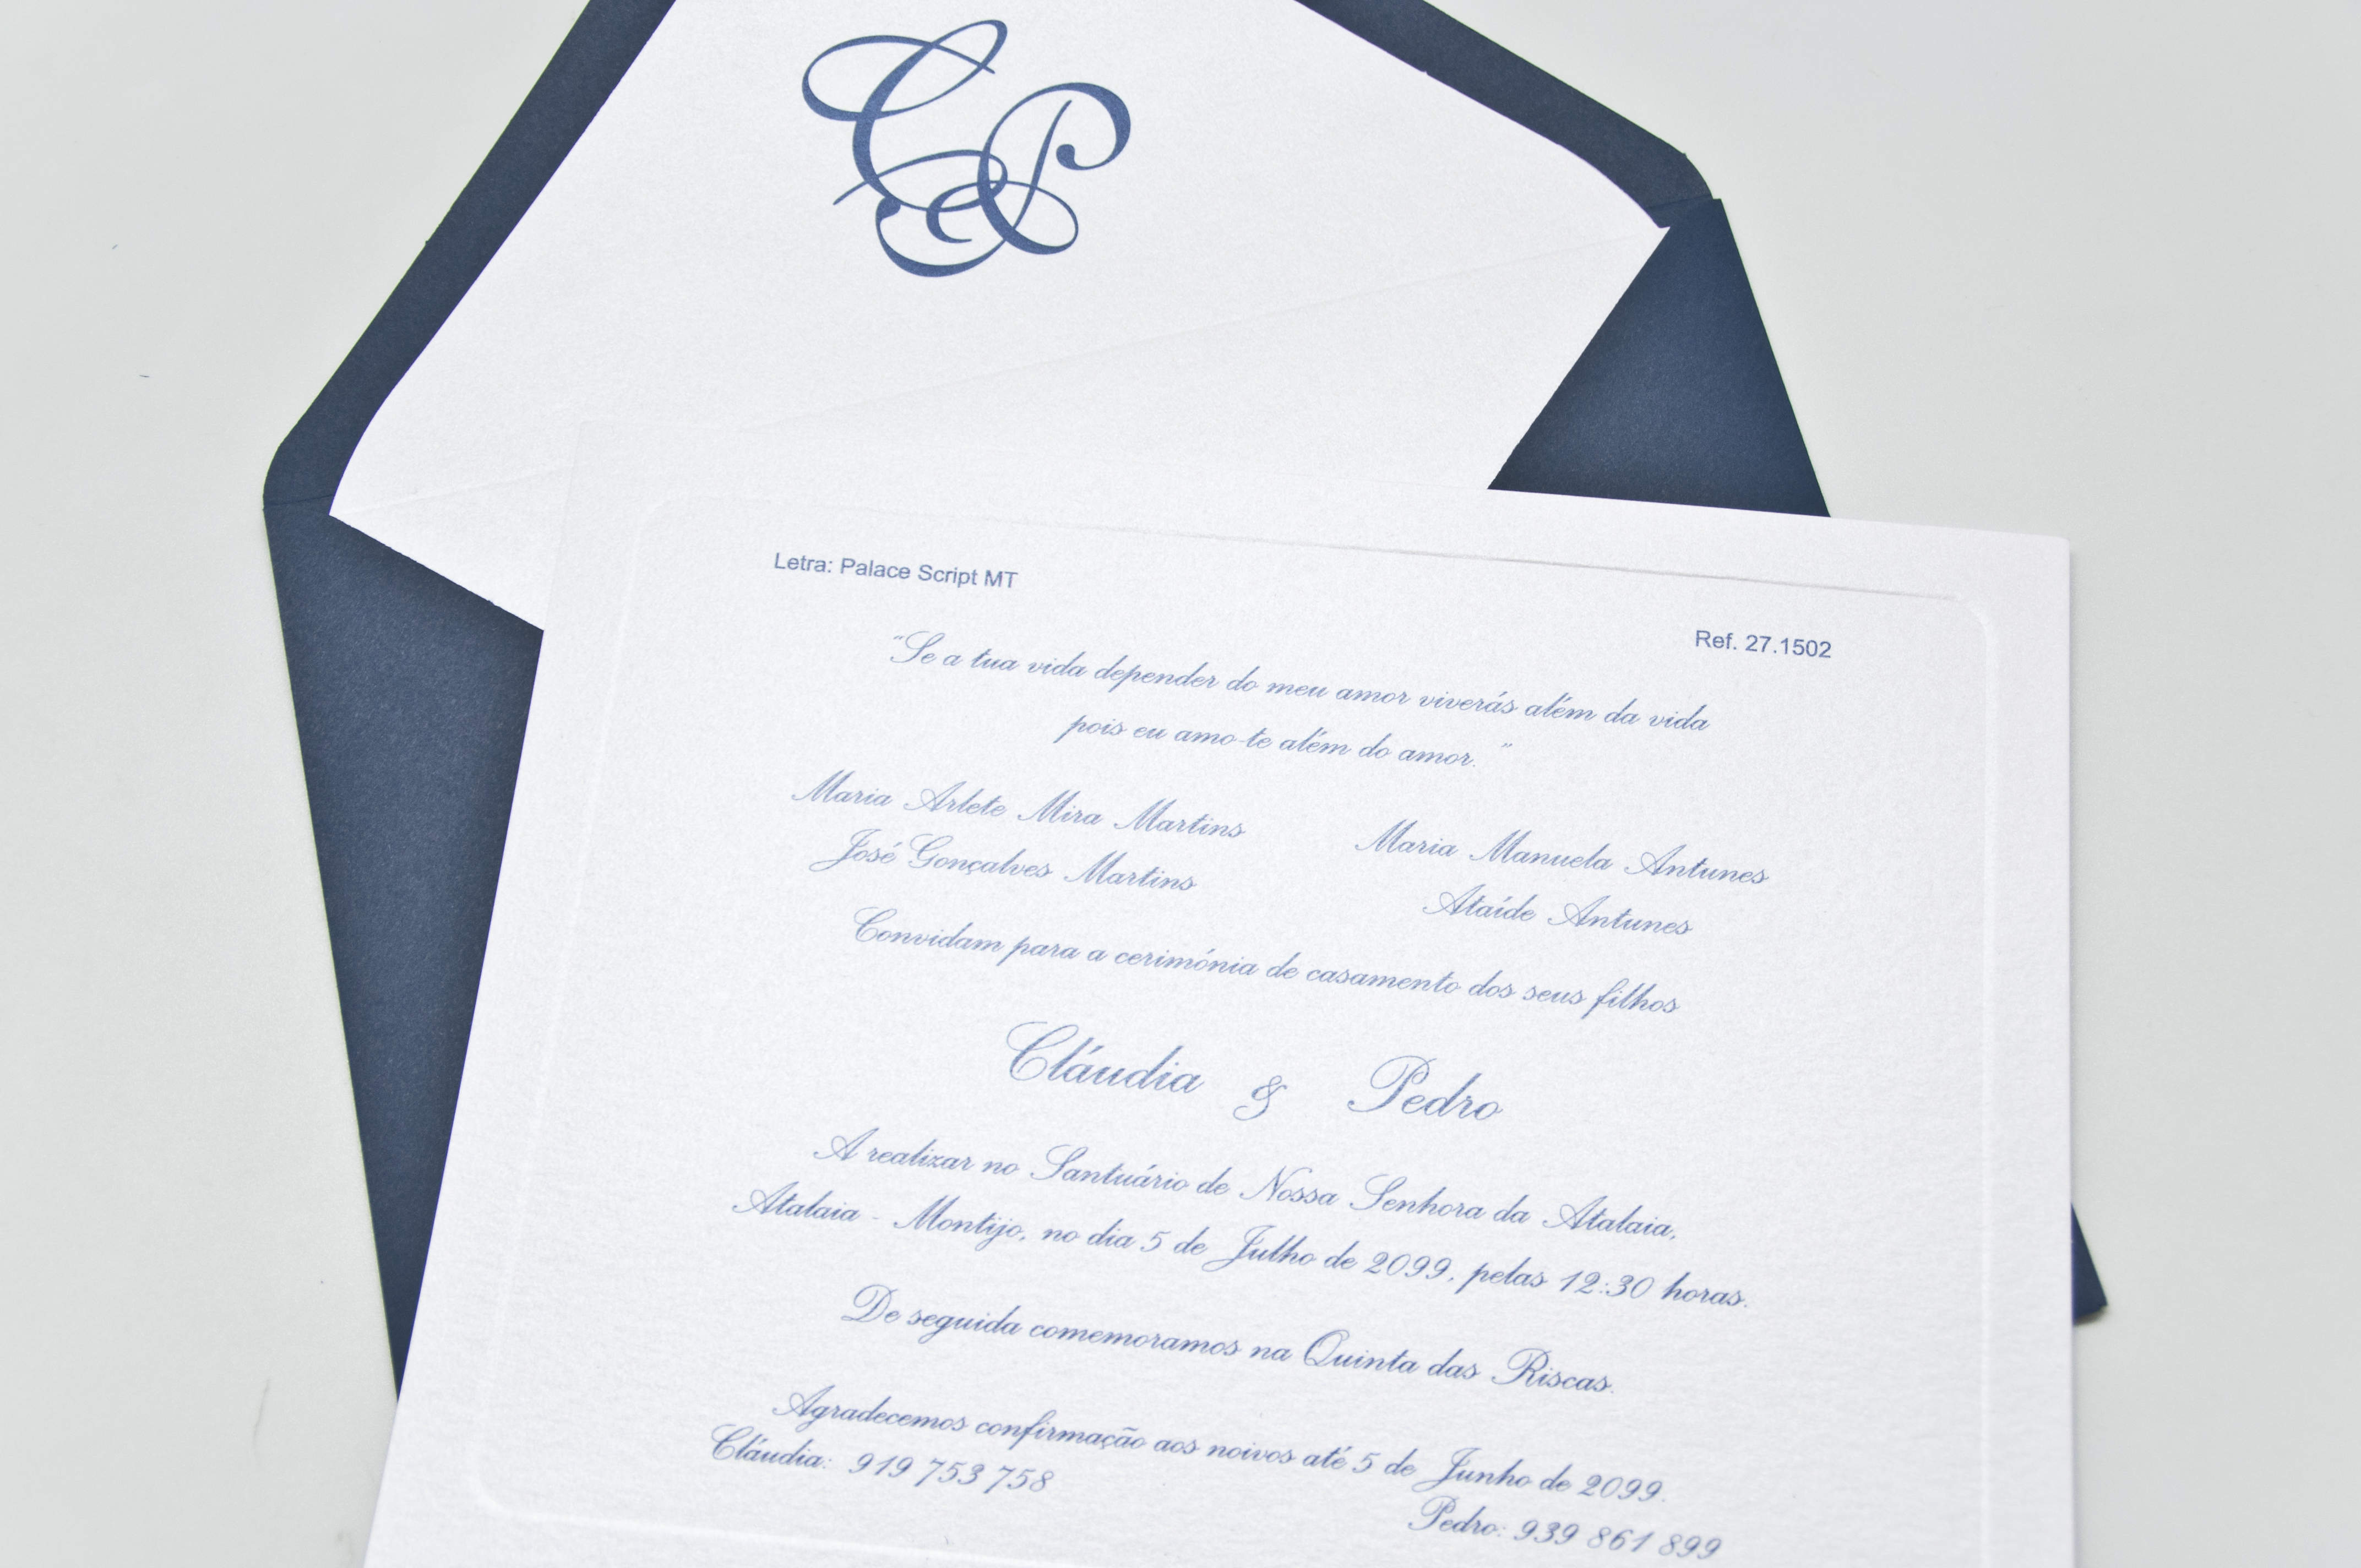 CP
Letra: Palace Script MT
Ref. 27.1502
"Se a tua vida depender do meu amor viverás além da vida
pois eu amo-te além do amor."
Maria Arlete Mira Martins
José Gonçalves Martins
Maria Manuela Antunes
Ataíde Antunes
Convidam para a cerimónia de casamento dos seus filhos
Cláudia & Pedro
A realizar no Santuário de Nossa Senhora da Atalaia,
Atalaia - Montijo, no dia 5 de Julho de 2099, pelas 12:30 horas.
De seguida comemoramos na Quinta das Riscas.
Agradecemos confirmação aos noivos até 5 de Junho de 2099.
Cláudia: 919 753 758
Pedro: 939 861 899